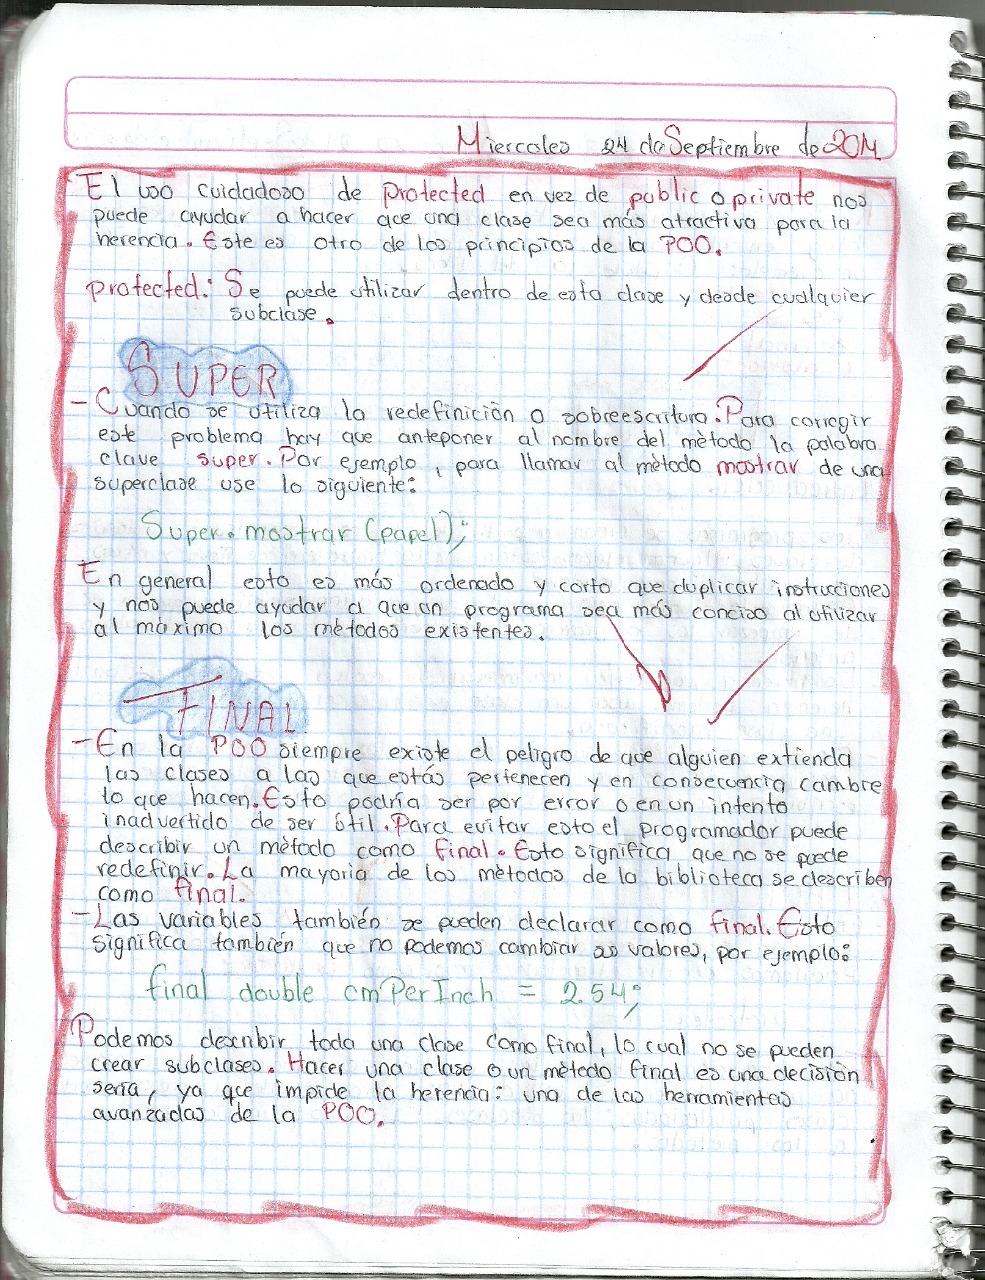 Miercoles 24 de Septiembre de 2014
El uso cuidadoso de protected en vez de public o private nos
puede ayudar a hacer que una clase sea más atractiva para la
herencia. Este es otro de los principios de la POO.
protected: Se puede utilizar dentro de esta clase y desde cualquier
subclase.
SUPER
- Cuando se utiliza la redefinición o sobreescritura. Para corregir
este problema hay que anteponer al nombre del método la palabra
clave super. Por ejemplo, para llamar al método mostrar de una
superclase use lo siguiente:
Super.mostrar (papel);
En general esto es más ordenado y corto que duplicar instrucciones
y nos puede ayudar a que un programa sea más conciso al utilizar
al máximo los métodos existentes.
FINAL
- En la POO siempre existe el peligro de que alguien extienda
las clases a las que estás pertenecen y en consecuencia cambre
lo que hacen. Esto podría ser por error o en un intento
inadvertido de ser útil. Para evitar esto el programador puede
describir un método como final. Esto significa que no se puede
redefinir. La mayoria de los métodos de la biblioteca se describen
como final.
- Las variables también se pueden declarar como final. Esto
significa también que no podemos cambiar sus valores, por ejemplo:
final double cmPerInch = 2.54;
Podemos describir toda una clase como final, lo cual no se pueden
crear subclases. Hacer una clase o un método final es una decisión
seria, ya que impide la herencia: una de las herramientas
avanzadas de la POO.